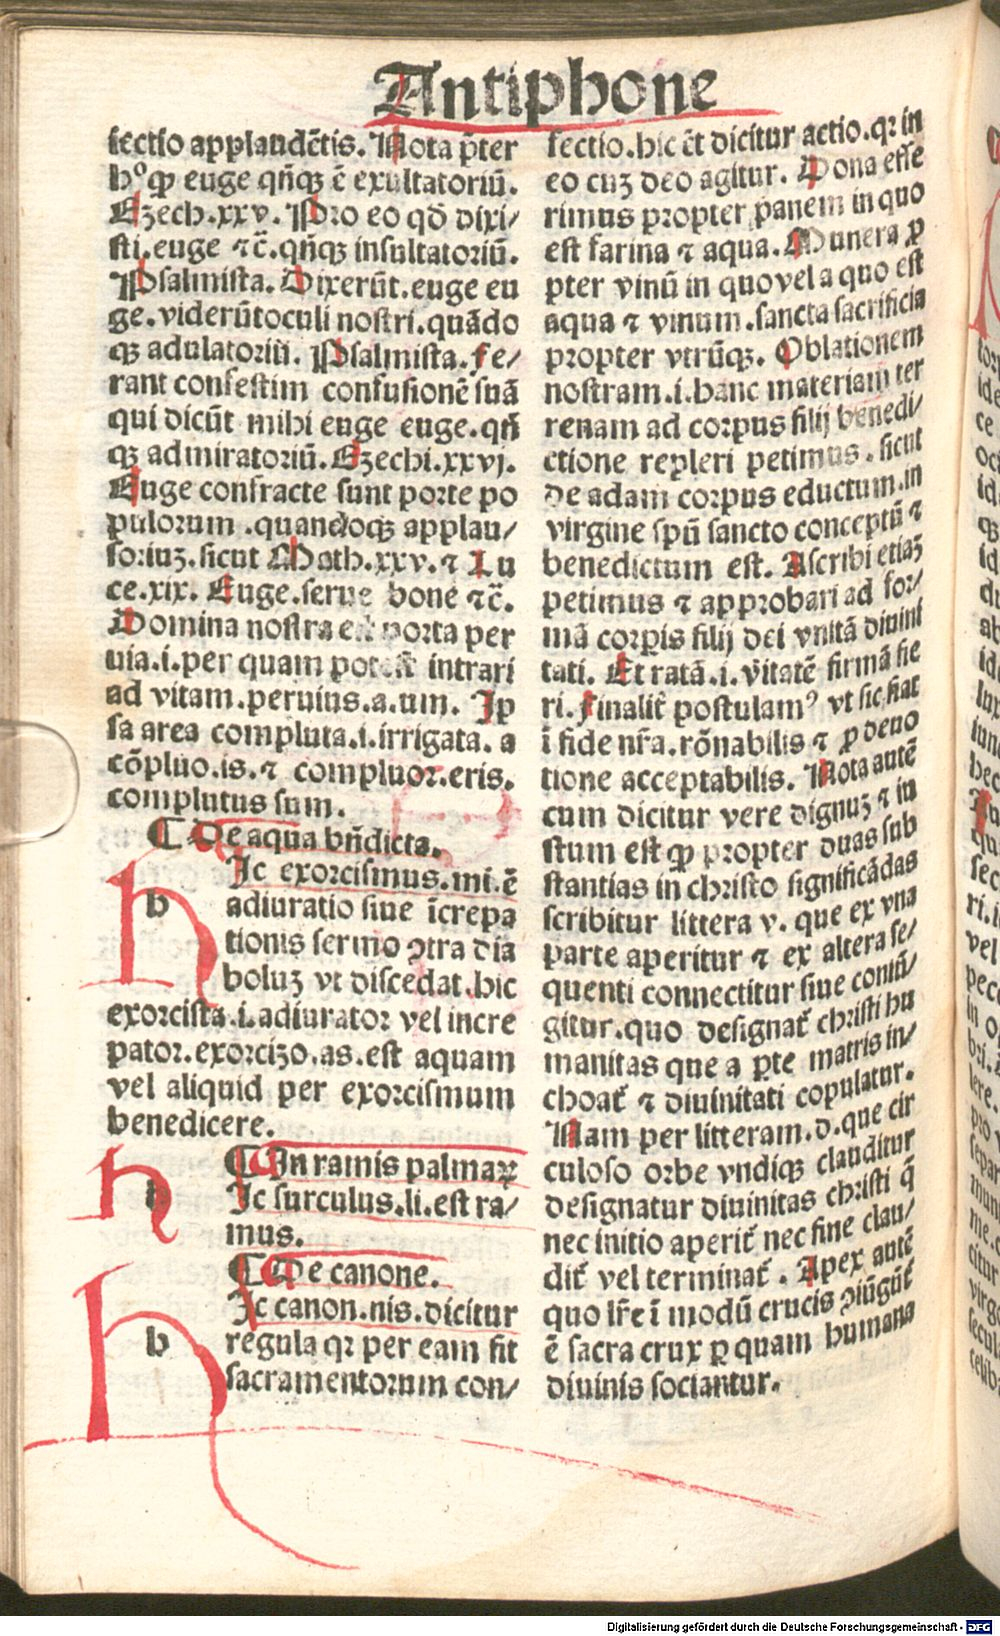 Antiphone
fectio applaudẽtis. Nota p̃ter
hº ꝙ euge qñꝗ ẽ exultatoriũ.
Ezech.xxv. Pro eo qð dixi/
sti.euge ⁊c̃.qñꝗ insultatoriũ.
Psalmista. Dixerũt.euge eu
ge.viderũtoculi nostri.quãdo
ꝗ adulatoriũ. Psalmista. fe/
rant confestim confusionẽ suã
qui dicũt mihi euge euge.qñ
ꝗ admiratoriũ. Ezechi.xxvj.
Euge confracte sunt porte po
pulorum .quandoꝗ applau/
soriuꝫ.sicut Math.xxv.⁊ Lu
ce.xix. Euge.serue bone ⁊c̃.
Domina nostra est porta per
uia.i.per quam potest intrari
ad vitam.peruius.a.um. Ip
sa area compluta.i.irrigata. a
cõpluo.is.⁊ compluor.eris.
complutus sum.
¶ De aqua bñdicta.
h Ic exorcismus.mi.ẽ
adiuratio siue ĩcrepa
tionis sermo ꝯtra dia
boluꝫ vt discedat.hic
exorcista.i.adiurator vel incre
pator.exorcizo.as.est aquam
vel aliquid per exorcismum
benedicere.
¶ In ramis palmaꝝ
h Ic surculus.li.est ra/
mus.
¶ De canone.
h Ic canon.nis.dicitur
regula qꝛ per eam fit
sacramentorum con/
fectio.hic et̃ dicitur actio.qꝛ in
eo cuꝫ deo agitur. Dona etse
rimus propter panem in quo
est farina ⁊ aqua. Munera ꝓ
pter vinũ in quo vel a quo est
aqua ⁊ vinum.sancta sacrificia
propter vtrũꝗ. Oblationem
nostram.i.hanc materiam ter
renam ad corpus filij benedi/
ctione repleri petimus. sicut
de adam corpus eductum.in
virgine spũ sancto conceptũ ⁊
benedictum est. Ascribi etiaꝫ
petimus ⁊ approbari ad for/
mã corpis filij dei vnitã diuini
tati. Et ratã.i.vĩtatẽ firmã fie
ri. finalit̃ postulamꝰ vt sic fiat
ĩ fide nr̃a.rõnabilis ⁊ ꝓ deuo
tione acceptabilis. Nota autẽ
cum dicitur vere dignuꝫ ⁊ in
stum est ꝙ propter duas sub
stantias in christo significãdas
scribitur littera v. que ex vna
parte aperitur ⁊ ex altera se/
quenti connectitur siue coniũ/
gitur.quo designat̃ christi hu
manitas que a ꝑte matris in/
choat̃ ⁊ diuinitati copulatur.
Nam per litteram.d.que cir
culoso orbe vndiꝗ clauditur
designatur diuinitas christi q̃
nec initio aperit̃ nec fine clau/
dit̃ vel terminat̃. Apex autẽ
quo lr̃e ĩ modũ crucis ꝯiũgũt̃
ẽ sacra crux ꝑ quam humana
diuinis sociantur.
Digitalisierung gefördert durch die Deutsche Forschungsgemeinschaft - DFG